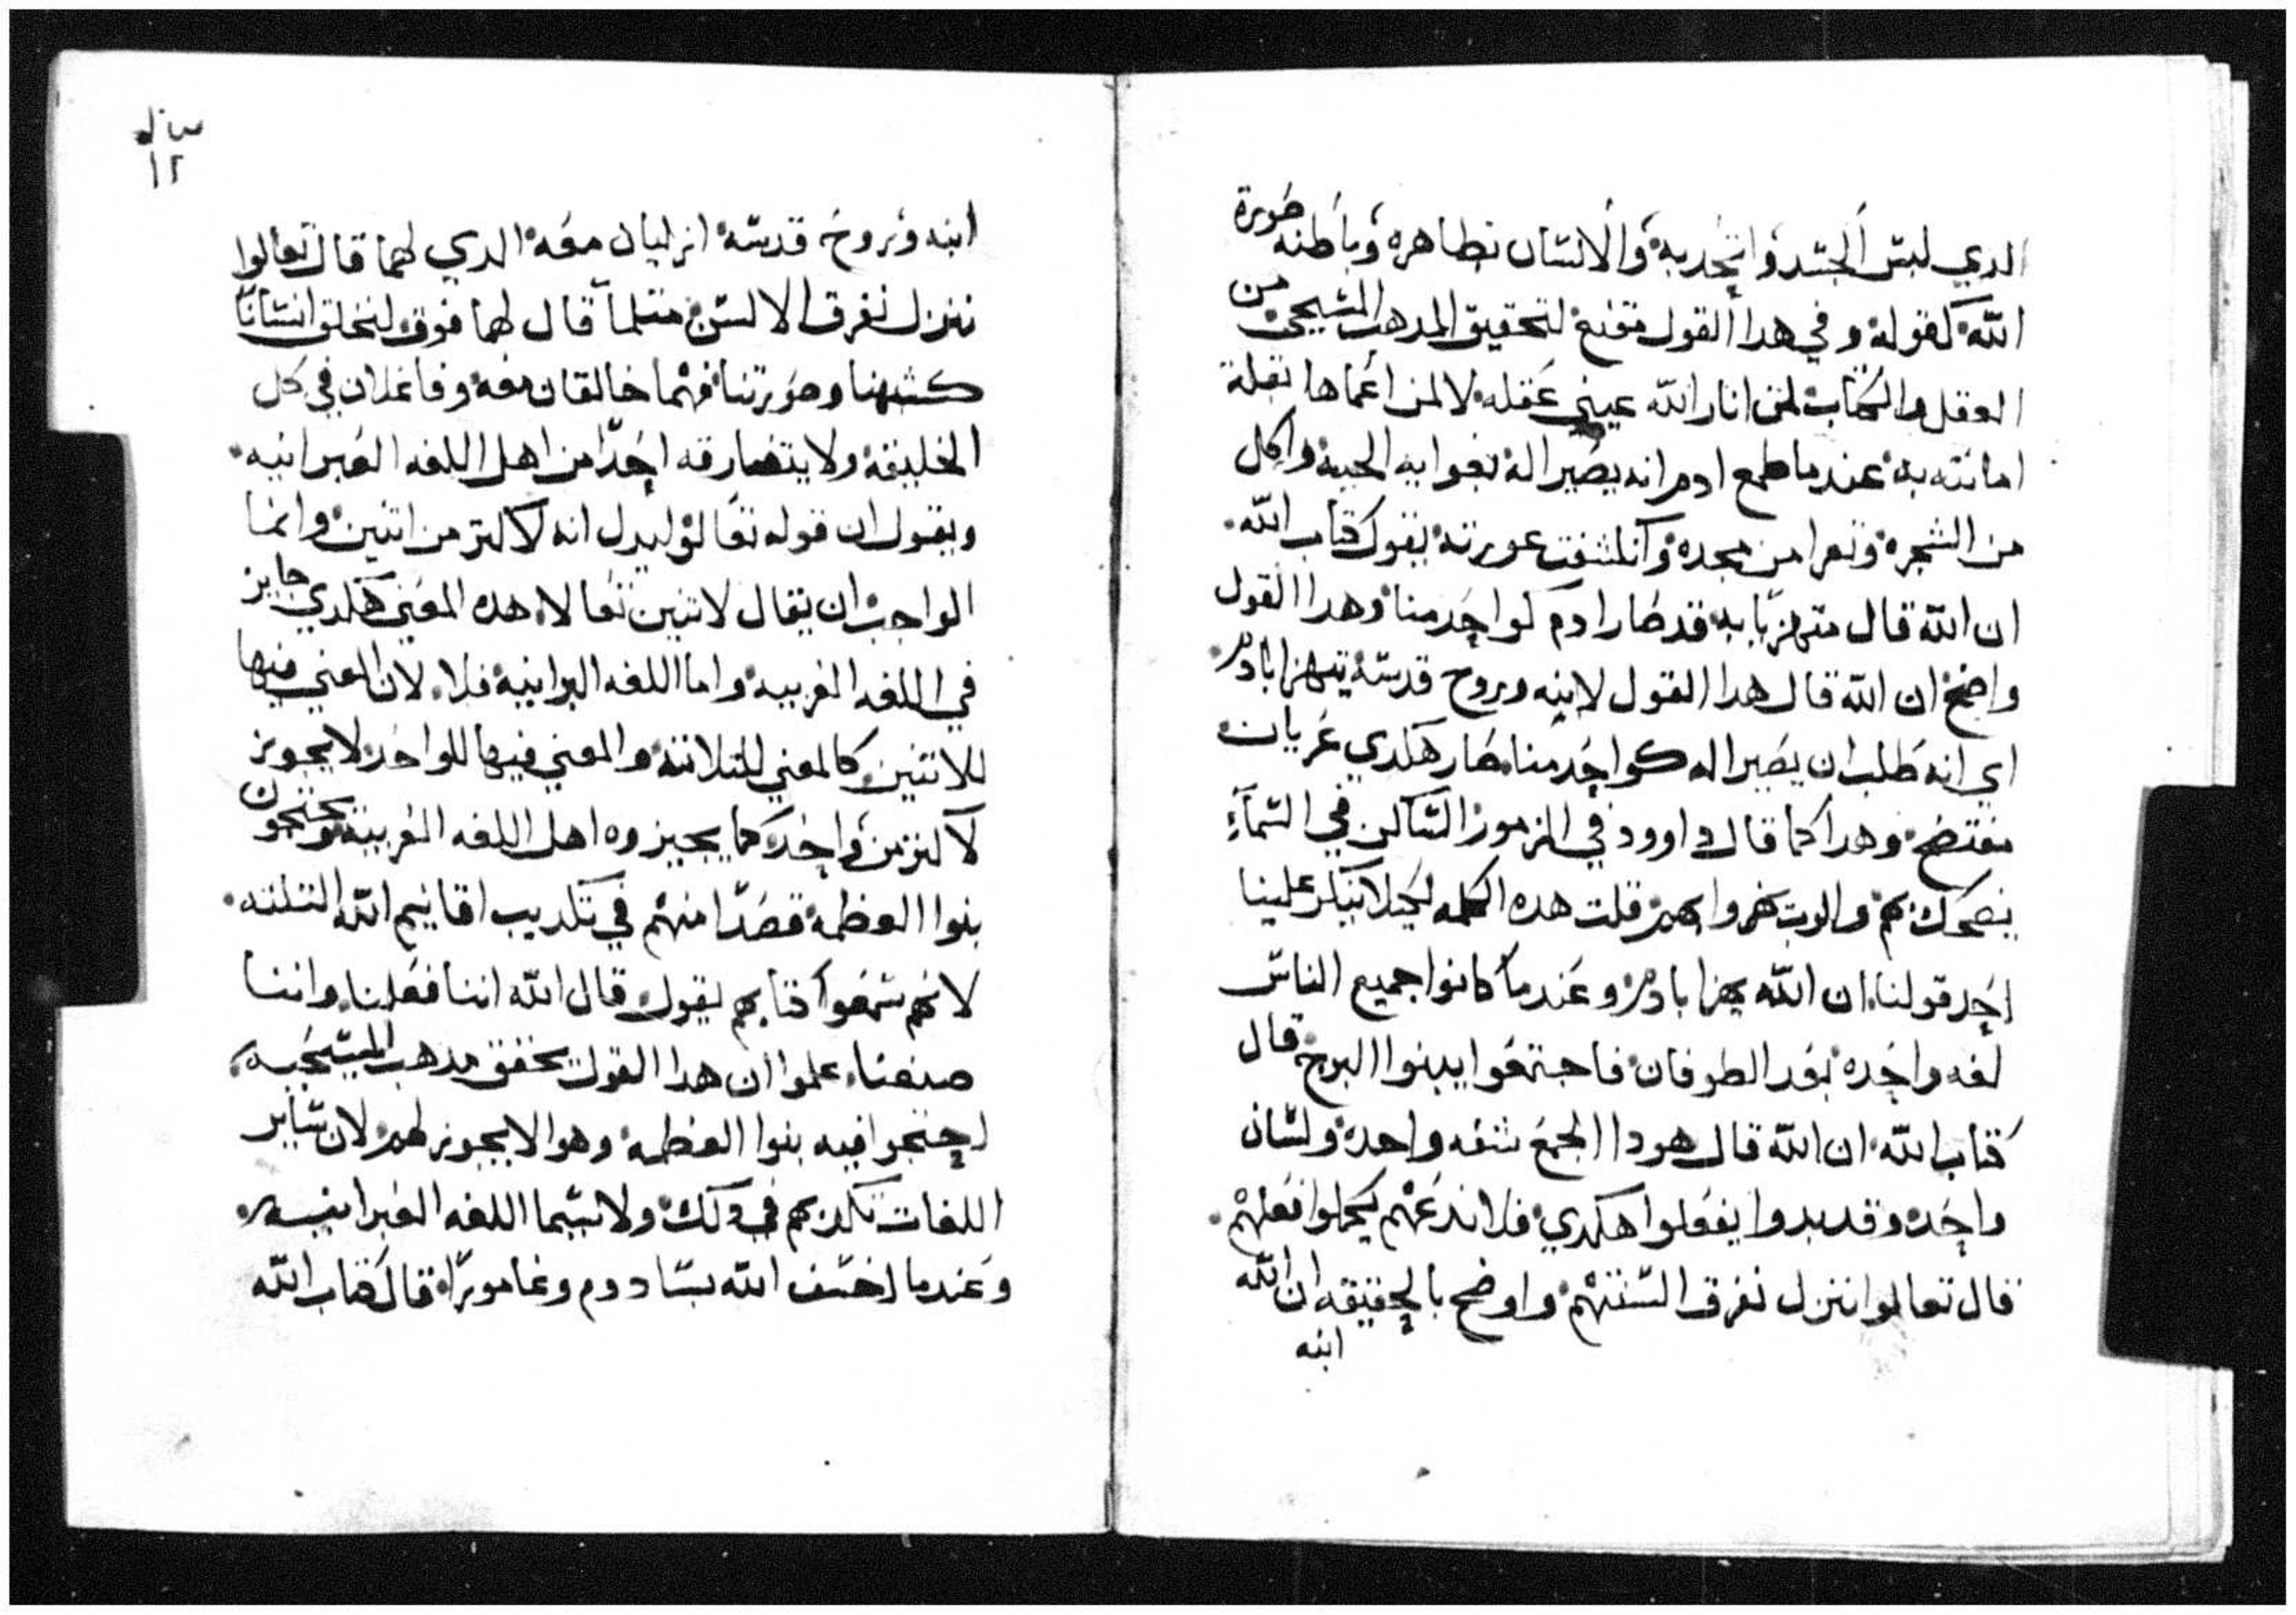 الدي لبس الجسد واتحد به والانسان بظاهره وباطنه صورة
الله كقوله وفي هدا القول مقنع لتحقيق المدهب المسيحي من
العقل والكتاب لمن انار الله عيني عقله لا لمن اعماها بقلة
امانته به عندما طمع ادم انه يصير اله بغوايه الحيه واكل
من الشجره وتعرا من مجده وانكشفت عورته يقول كتاب الله
ان الله قال متهزيا به قد صار ادم كواحد منا وهدا القول
واضح ان الله قال هدا القول لابنه وروح قدسه يتهزا بادم
اي انه طلب ان يصير اله كواحد منا صار هكدي عريان
مفتضح وهدا كما قال داوود في المزمور الساكن في السماء
يضحك بهم والرب يهزوا بهم قلت هده الكلمه لكيلا ينكر علينا
احد قولنا ان الله يهزا بادم وعندما كانوا جميع الناس
لغه واحده بعد الطوفان فاجتمعوا يبنوا البرج قال
كتاب الله ان الله قال هودا الجمع شفه واحده ولسان
واحده وقد بدوا يفعلوا هكدي فلا ندعهم يكملوا فعلهم
قال تعالوا ننزل نفرق السنتهم واوضح بالحقيقه ان الله
ابنه
١٢
ابنه وروح قدسه ازليان معه الدي لهما قال تعالوا
ننزل نفرق الالسن مثلما قال لهما فوق لنخلق انسانا
كشبهنا وصورتنا فهما خالقان معه وفاعلان في كل
الخليقه ولا يتضارقه احدا من اهل اللغه العبرانيه
ويقول ان قوله تعالو ليدل انه لاكتر من اتنين وانما
الواجب ان يقال لاتنين تعالا هده المعني هكدي جايز
في اللغه العربيه واما اللغه العبرانيه فلا لان المعني فيها
للاتنين كالمعني للتلاته والمعني فيها للواحد لا يجوز
لاكتر من واحد كما يجيزوه اهل اللغه العربيه ويحتجون
بنوا العظمه قصدا منهم في تكديب اقانيم الله التلته
لانهم سمعوا كتابهم يقول قال الله اننا فعلنا واننا
صنعنا علموا ان هدا القول يحقق مدهب المسيحيه
احتجوا فيه بنوا العظمه وهو الا يجوز لهم لان ساير
اللغات تكدبهم في دلك ولا سيما اللغه العبرانيه
وعندما اخسف الله بسادوم وغامورا قال كتاب الله